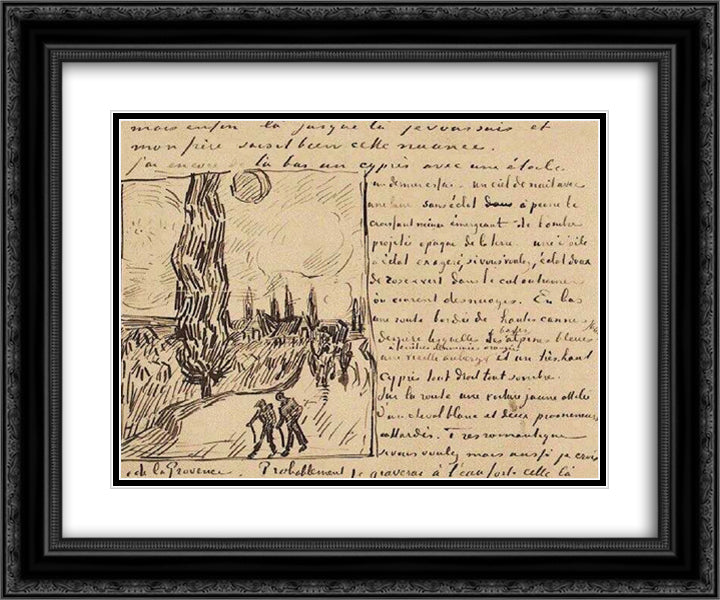 mais enfin là jusque là je vous sais et
mon père savait bien cette nuance.
j'ai encore de là bas un cyprès avec une étoile
un dernier essai – un ciel de nuit avec
une lune sans éclat dans à peine le
croissant mince émergeant de l'ombre
projetée opaque de la terre – une étoile
à éclat exageré, si vous voulez, éclat doux
de rose & vert dans le ciel outremer
où courent des nuages. En bas
une route bordée de hautes cannes
derrière lesquelles les basses alpines bleues
une vieille auberge à fenêtres illuminées orangée et un très haut
cyprès tout droit tout sombre.
Sur la route une voiture jaune attelée
d'un cheval blanc et deux promeneurs
attardés. Très romantique
si vous voulez mais aussi je crois
de la Provence. Probablement je graverai à l'eau forte celle là